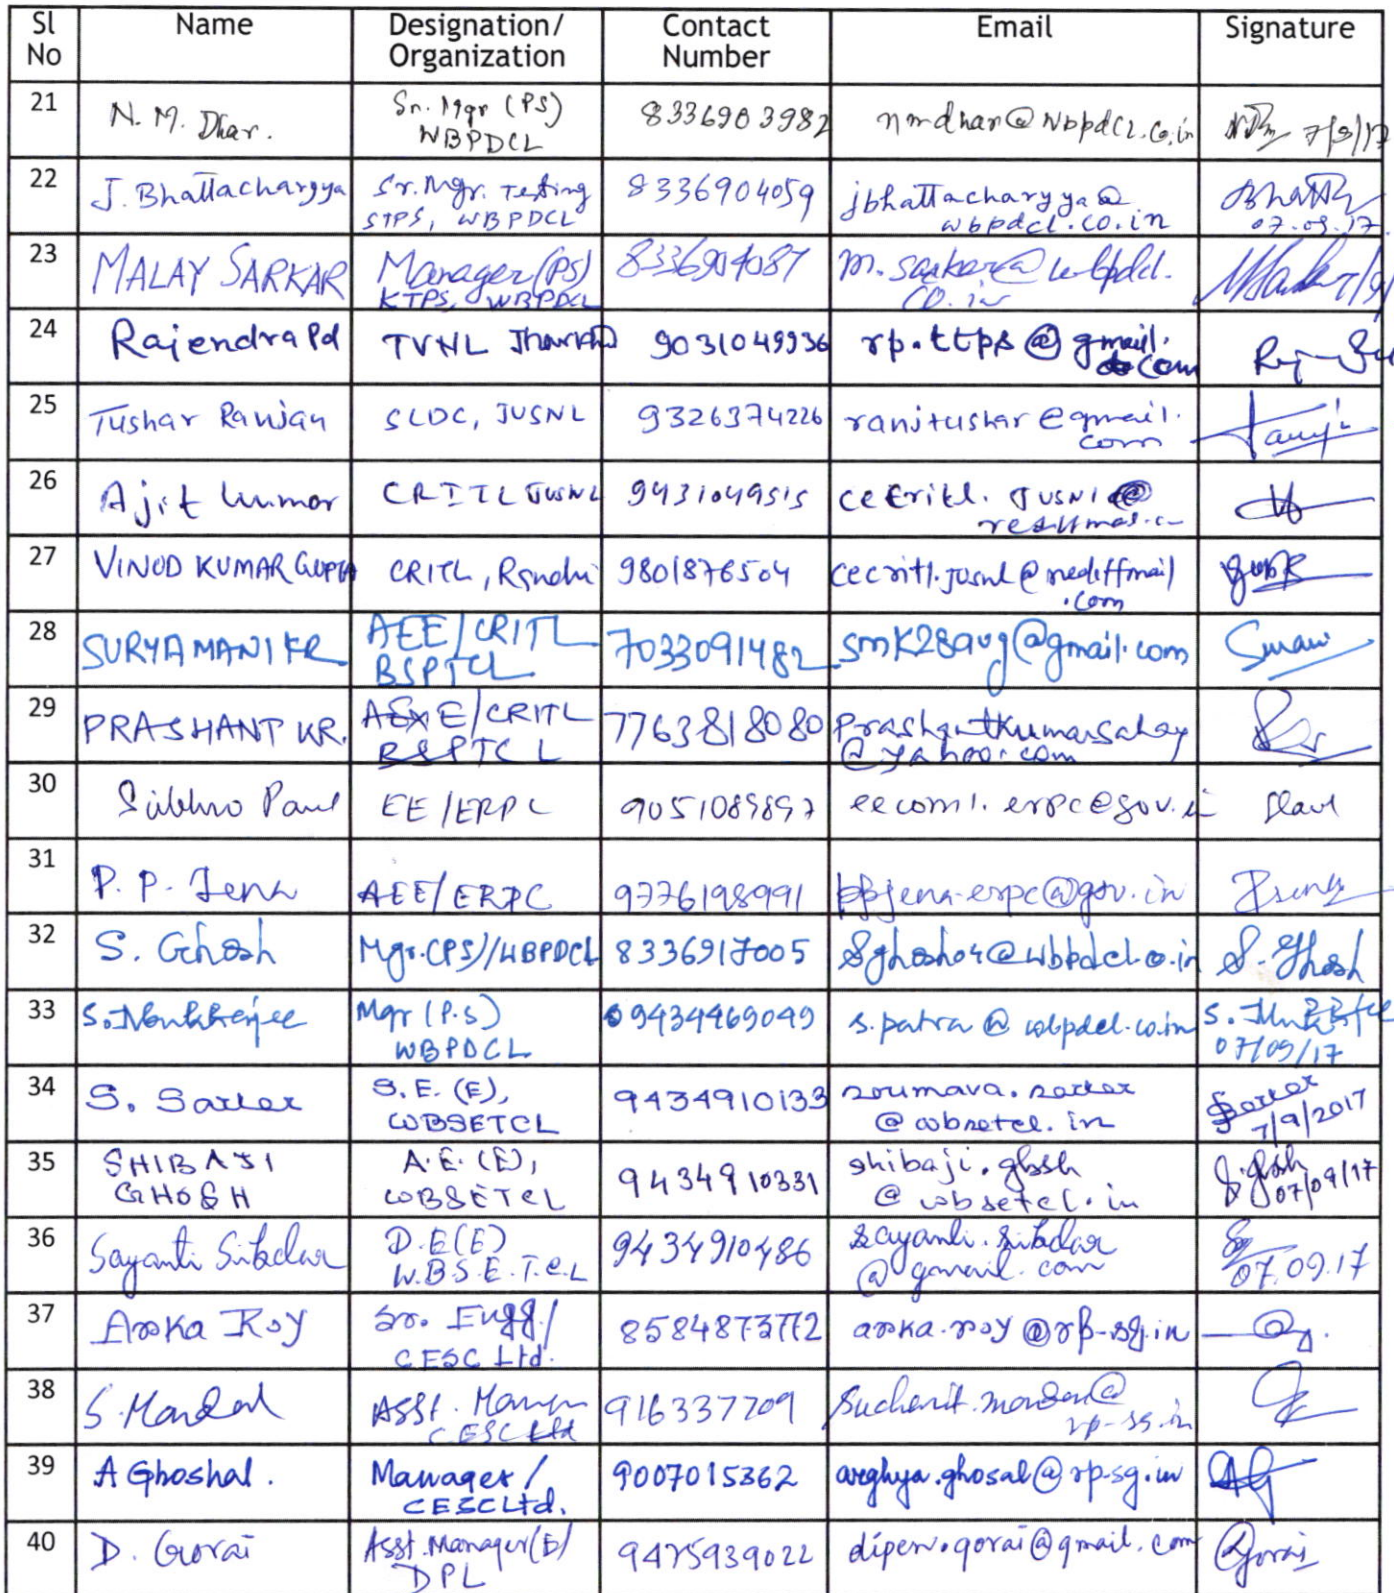 Sl No Name Designation/ Organization Contact Number Email Signature
21 N. M. Dhar. Sr. Mgr (PS) 8336903982 nmdhar@wbpdcl.co.in 7/9/17
WBPDCL
22 J. Bhattacharyya Sr. Mgr. Testing 8336904059 jbhattacharyya@
STPS, WBPDCL wbpdcl.co.in 07.09.17
23 MALAY SARKAR Manager (PS) 8336904087 m.sarkar@wbpdcl.
KTPS, WBPDCL co.in
24 Rajendra Pd TVNL Jharkhand 9031049936 rp.ttps@gmail.
com
25 Tushar Ranjan SLDC, JUSNL 9326374226 ranjtushar@gmail.
com
26 Ajit Kumar CRITL JUSNL 9431049515
27 VINOD KUMAR GUPTA CRITL, Ranchi 9801876504 cecritl.jusnl@rediffmail
.com
28 SURYAMANI KR AEE/CRITL 7033091482 smk28aug@gmail.com
BSPTCL
29 PRASHANT KR. AExE/CRITL 7763818080 prashantkumarsahay
BSPTCL @yahoo.com
30 Subhro Paul EE/ERPC 9051089897 eecom1.erpc@gov.in
31 P. P. Jena AEE/ERPC 9776198991 ppjena.erpc@gov.in
32 S. Ghosh Mgr.(PS)/WBPDCL 8336917005 sghosh04@wbpdcl.co.in S. Ghosh
33 S. Mukherjee Mgr (P.S) 09434469049 s.patra@wbpdcl.co.in
WBPDCL 07/09/17
34 S. Sarkar S.E. (E), 9434910133 soumava.sarkar
WBSETCL @wbsetcl.in 7/9/2017
35 SHIBAJI A.E. (E), 9434910331 shibaji.ghosh
GHOSH WBSETCL @wbsetcl.in 07/09/17
36 Sayanti Sikdar D.E(E) 9434910486 sayanti.sikdar
W.B.S.E.T.C.L @gmail.com 07.09.17
37 Arka Roy Sr. Engg./ 8584873772 arka.roy@rp-sg.in
CESC Ltd.
38 S. Mondal Asst. Manager 916337709
CESC Ltd rp-sg.in
39 A Ghoshal. Manager/ 9007015362 arghya.ghosal@rp-sg.in AG
CESC Ltd.
40 D. Gorai Asst. Manager(E)/ 9475939022 dipen.gorai@gmail.com Gorai
DPL